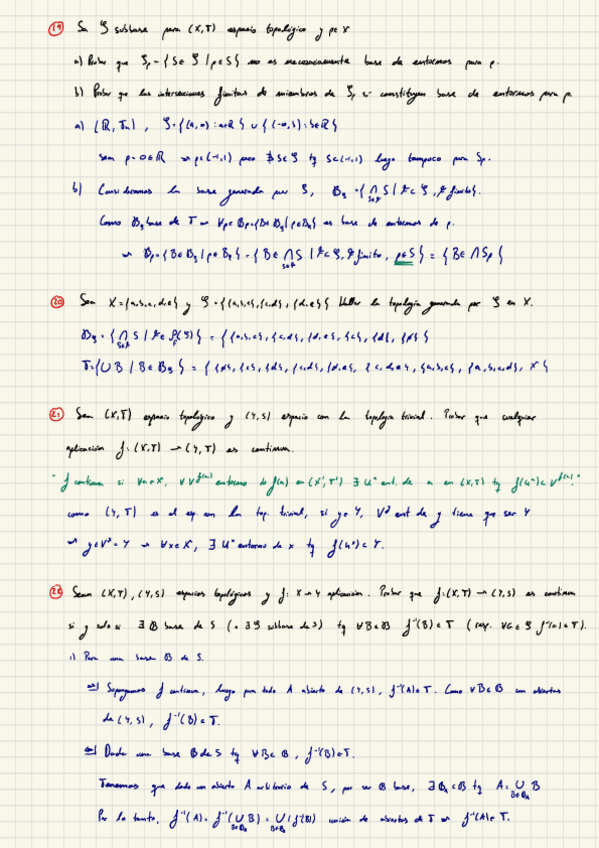 19 Sea 𝒮 subbase para (X,T) espacio topológico y p∈X
a) Probar que 𝒮p = {S∈𝒮 | p∈S} no es necesariamente base de entornos para p.
b) Probar que las intersecciones finitas de miembros de 𝒮p si constituyen base de entornos para p.
a) (ℝ, Tu), 𝒮 = {(a,∞) : a∈ℝ} ∪ {(-∞,b) : b∈ℝ}
sea p=0∈ℝ ⇝ p∈(-1,1) pero ∄S∈𝒮 tq S⊂(-1,1) luego tampoco para 𝒮p.
b) Consideramos la base generada por 𝒮, ℬ𝒮 = {⋂ S | ⊂𝒮, finito}.
Como ℬ𝒮 base de T ⇝ ∀p ℬp={B∈ℬ𝒮 | p∈B} es base de entornos de p.
⇝ ℬp={B∈ℬ𝒮 | p∈B} = {B∈⋂ S | ⊂𝒮, finito, p∈S} = {B∈⋂𝒮p}
20 Sea X={a,b,c,d,e} y 𝒮={{a,b,c},{c,d},{d,e}} Hallar la topología generada por 𝒮 en X.
ℬ𝒮 = {⋂ S | ∈ (𝒮)} = {{a,b,c},{c,d},{d,e},{c},{d},{∅}}
T={∪B | B∈ℬ𝒮} = {{∅},{c},{d},{c,d},{d,e},{c,d,e},{a,b,c},{a,b,c,d}, X}
21 Sean (X,T) espacio topológico y (Y,S) espacio con la topología trivial. Probar que cualquier
aplicación f:(X,T)→(Y,T) es continua.
"f continua si ∀a∈X, ∀V^f(a) entorno de f(a) en (X',T') ∃U^a ent. de a en (X,T) tq f(U^a)⊂V^f(a)."
como (Y,T) es el esp con la top. trivial, si y∈Y, V^y ent de y tiene que ser Y
⇝ y∈V^y=Y ⇝ ∀x∈X, ∃U^x entorno de x tq f(U^x)⊂Y.
22 Sean (X,T),(Y,S) espacios topológicos y f: X→Y aplicación. Probar que f:(X,T)→(Y,S) es continua
si y solo si ∃ℬ base de S (o ∃𝒮 subbase de S) tq ∀B∈ℬ f⁻¹(B)∈T (resp. ∀G∈𝒮 f⁻¹(G)∈T).
i) Para una base ℬ de S.
⇒) Supongamos f continua, luego para todo A abierto de (Y,S), f⁻¹(A)∈T. Como ∀B∈ℬ son abiertos
de (Y,S), f⁻¹(B)∈T.
⇐) Dada una base ℬ de S tq ∀B∈ℬ, f⁻¹(B)∈T.
Tenemos que dado un abierto A arbitrario de S, por ser ℬ base, ∃ℬA⊂ℬ tq A=∪_{B∈ℬA} B
Por lo tanto, f⁻¹(A)=f⁻¹(∪_{B∈ℬA} B)=∪_{B∈ℬA}(f⁻¹(B)) unión de abiertos de T ⇝ f⁻¹(A)∈T.